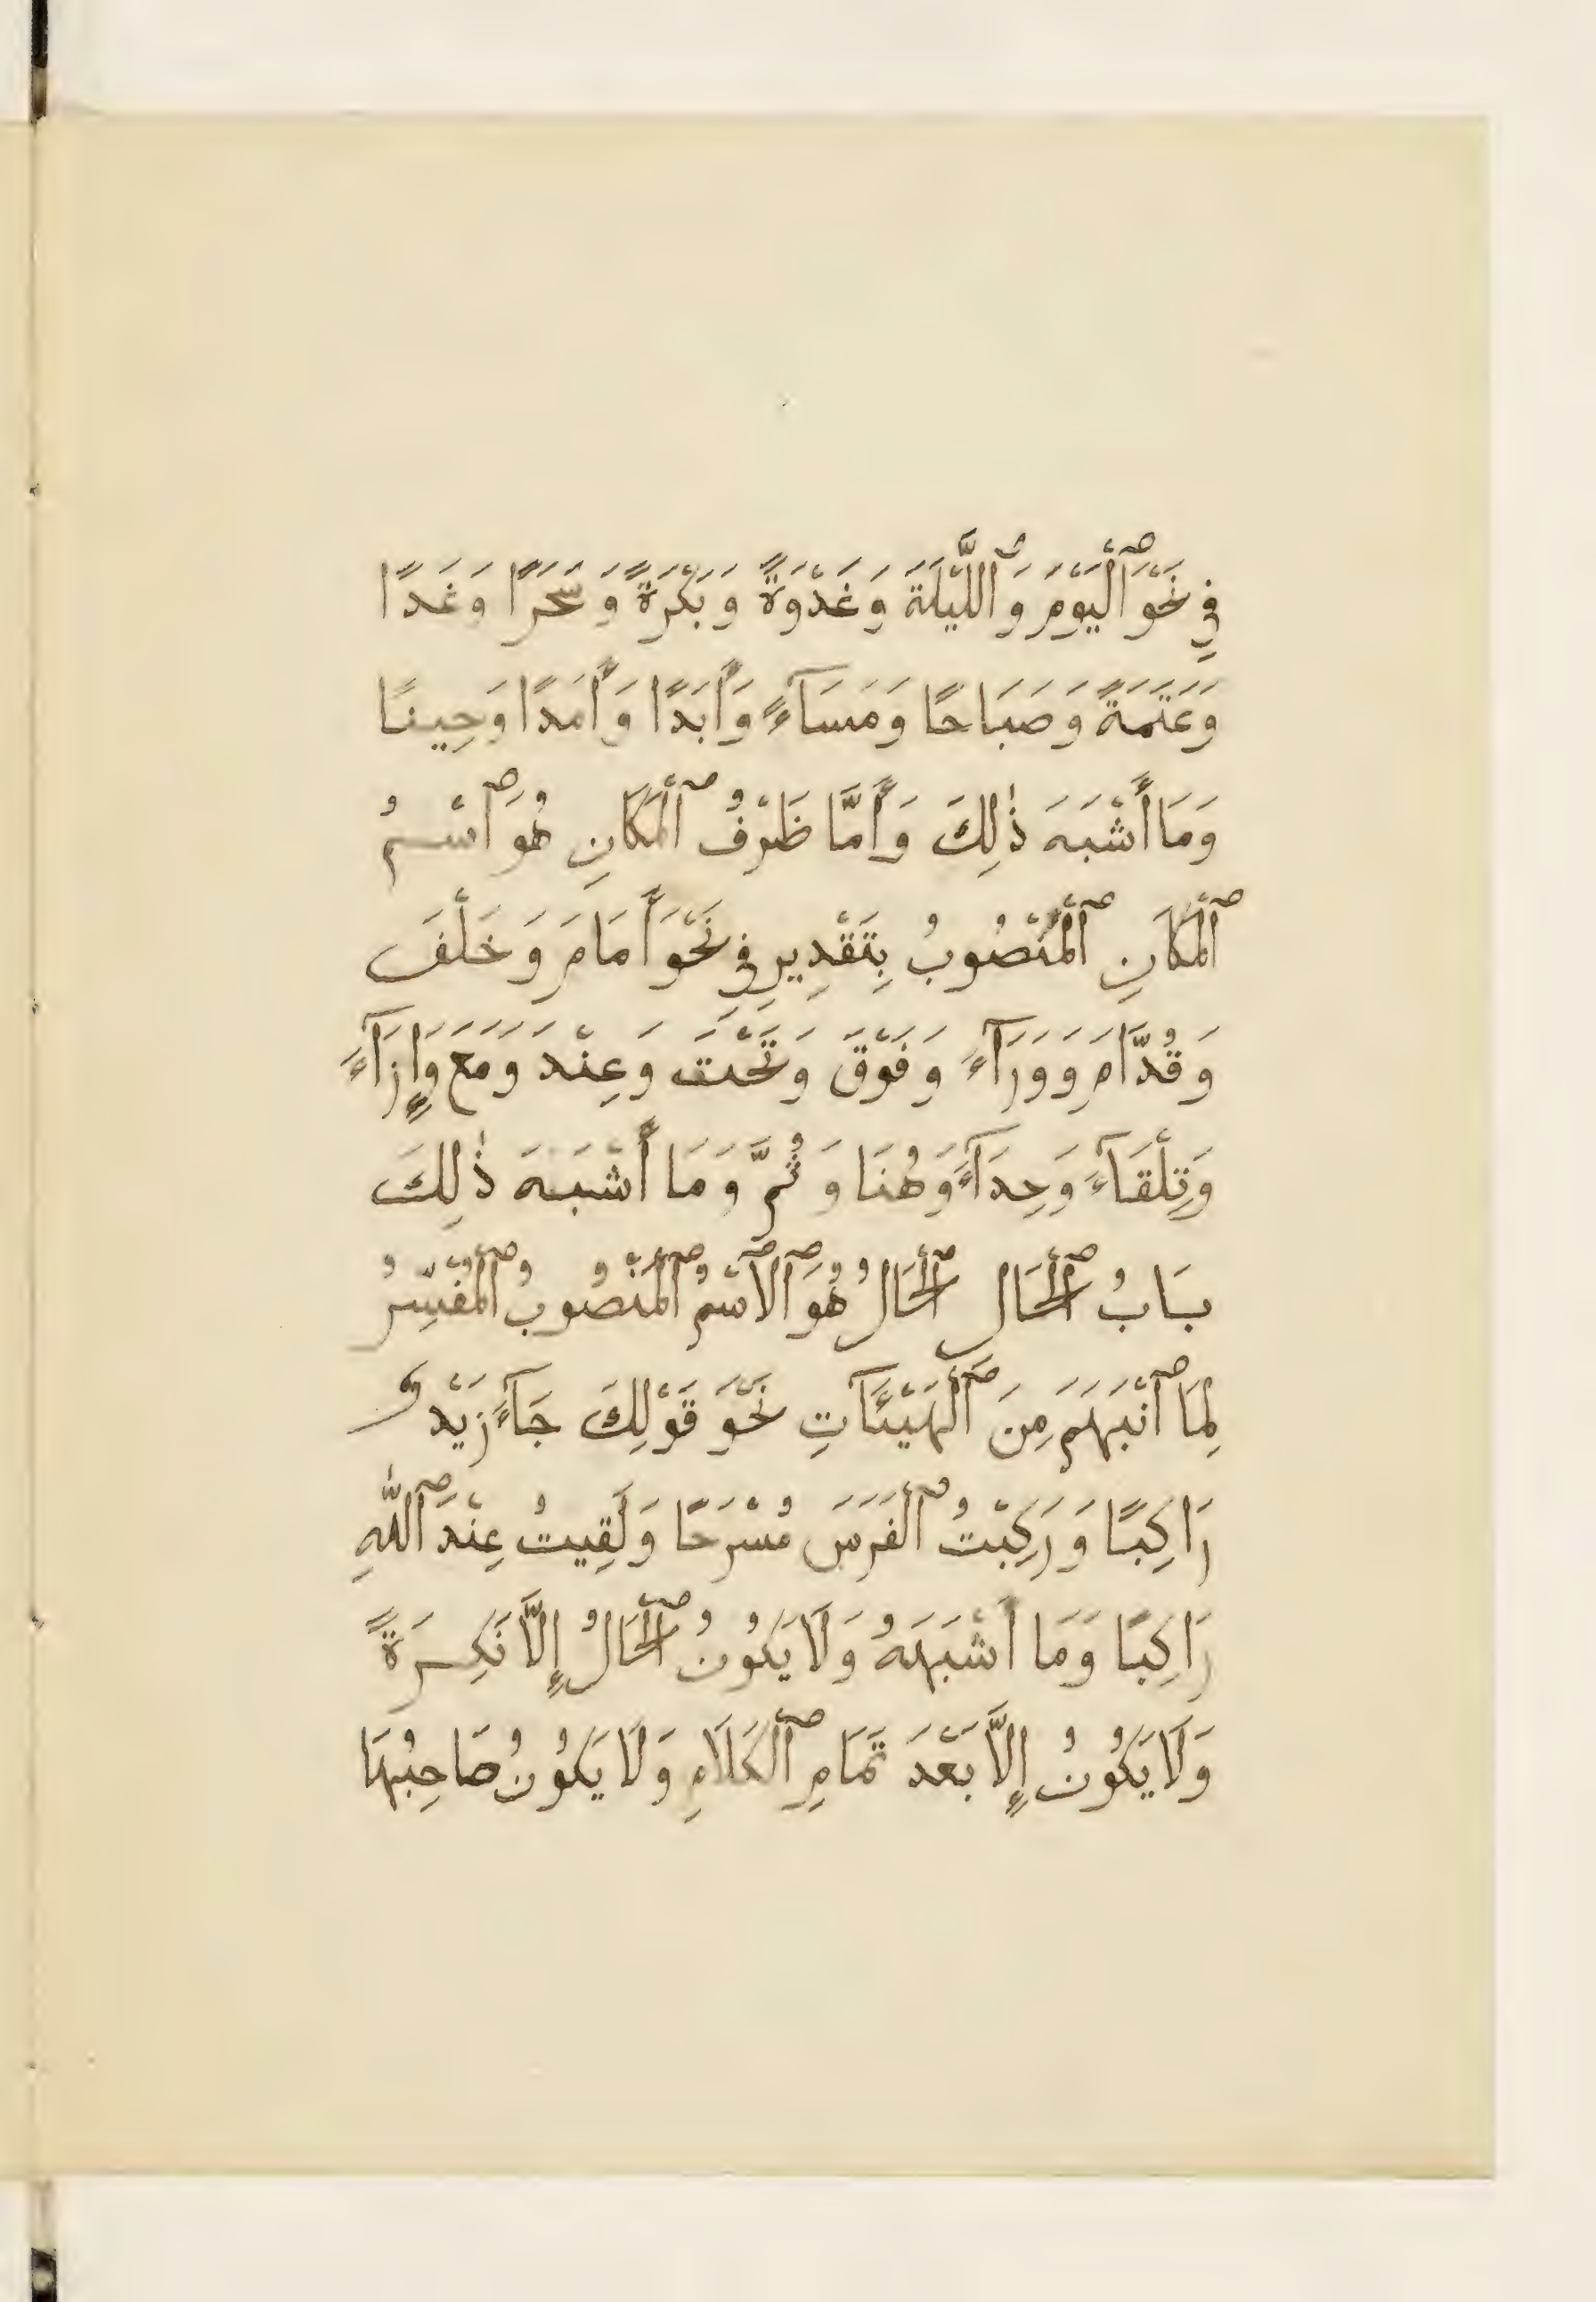 فِي نَحْوَ ٱلْيَوْمَ وَٱللَّيْلَةَ وَغَدْوَةً وَبَكْرَةً وَسَحَرًا وَغَدًا
وَعَتَمَةً وَصَبَاحًا وَمَسَآءً وَأَبَدًا وَأَمَدًا وَحِينًا
وَمَا أَشْبَهَ ذٰلِكَ وَأَمَّا ظَرْفُ ٱلْمَكَانِ هُوَ ٱسْمُ
ٱلْمَكَانِ ٱلْمَنْصُوبُ بِتَقْدِيرِ فِي نَحْوَ أَمَامَ وَخَلْفَ
وَقُدَّامَ وَوَرَآءَ وَفَوْقَ وَتَحْتَ وَعِنْدَ وَمَعَ وَإِزَآءَ
وَتِلْقَآءَ وَحِدَآءَ وَهُنَا وَثُمَّ وَمَا أَشْبَهَ ذٰلِكَ
بَابُ ٱلْحَالِ ٱلْحَالُ هُوَ ٱلْآسْمُ ٱلْمَنْصُوبُ ٱلْمُفَسِّرُ
لِمَا ٱنْبَهَمَ مِنَ ٱلْهَيْئَآتِ نَحْوَ قَوْلِكَ جَآءَ زَيْدٌ
رَاكِبًا وَرَكِبْتُ ٱلْفَرَسَ مُسْرَحًا وَلَقِيتُ عِنْدَ ٱللّٰهِ
رَاكِبًا وَمَا أَشْبَهَهُ وَلَا يَكُونُ ٱلْحَالُ إِلَّا نَكِرَةً
وَلَا يَكُونُ إِلَّا بَعْدَ تَمَامِ ٱلْكَلَامِ وَلَا يَكُونُ صَاحِبُهَا